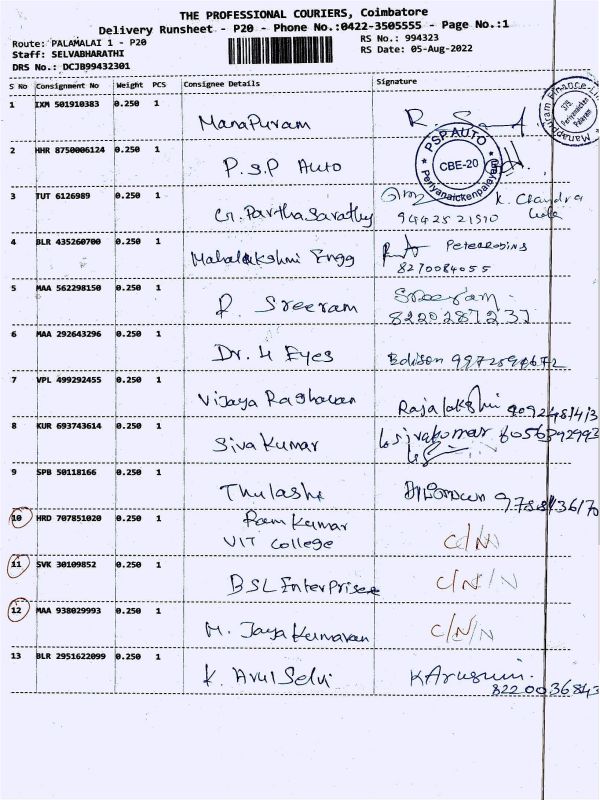 THE PROFESSIONAL COURIERS, Coimbatore
Delivery Runsheet - P20 - Phone No.:0422-3505555 - Page No.:1
Route: PALAMALAI 1 - P20
RS No.: 994323
Staff: SELVABHARATHI
RS Date: 05-Aug-2022
DRS No.: DCJB99432301
S No Consignment No Weight PCS Consignee Details Signature
1 IXM 501910383 0.250 1 Manapuram
2 HHR 8750006124 0.250 1 P.S.P Auto
PSP AUTO
CBE-20
Periyanaickenpalayam
3 TUT 6126989 0.250 1 G. Partha Sarathy K. Chandra
9442521910
4 BLR 435260700 0.250 1 Mahalakshmi Engg Peter Robins
8270084055
5 MAA 562298150 0.250 1 P. Sreeram Sreeram
8220287237
6 MAA 292643296 0.250 1 Dr. 4 Eyes Edison
7 VPL 499292455 0.250 1 Vijaya Raghavan Rajalakshmi
8 KUR 693743614 0.250 1 Siva Kumar
9 SPB 50118166 0.250 1 Thulashi
10 HRD 707851020 0.250 1 Ram Kumar
VIT College
C/N
11 SVK 30109852 0.250 1 BSL Enterprise C/N/N
12 MAA 938029993 0.250 1 M. Jaya Kumaran C/N/N
13 BLR 2951622099 0.250 1 K. Arul Selvi
8220036843